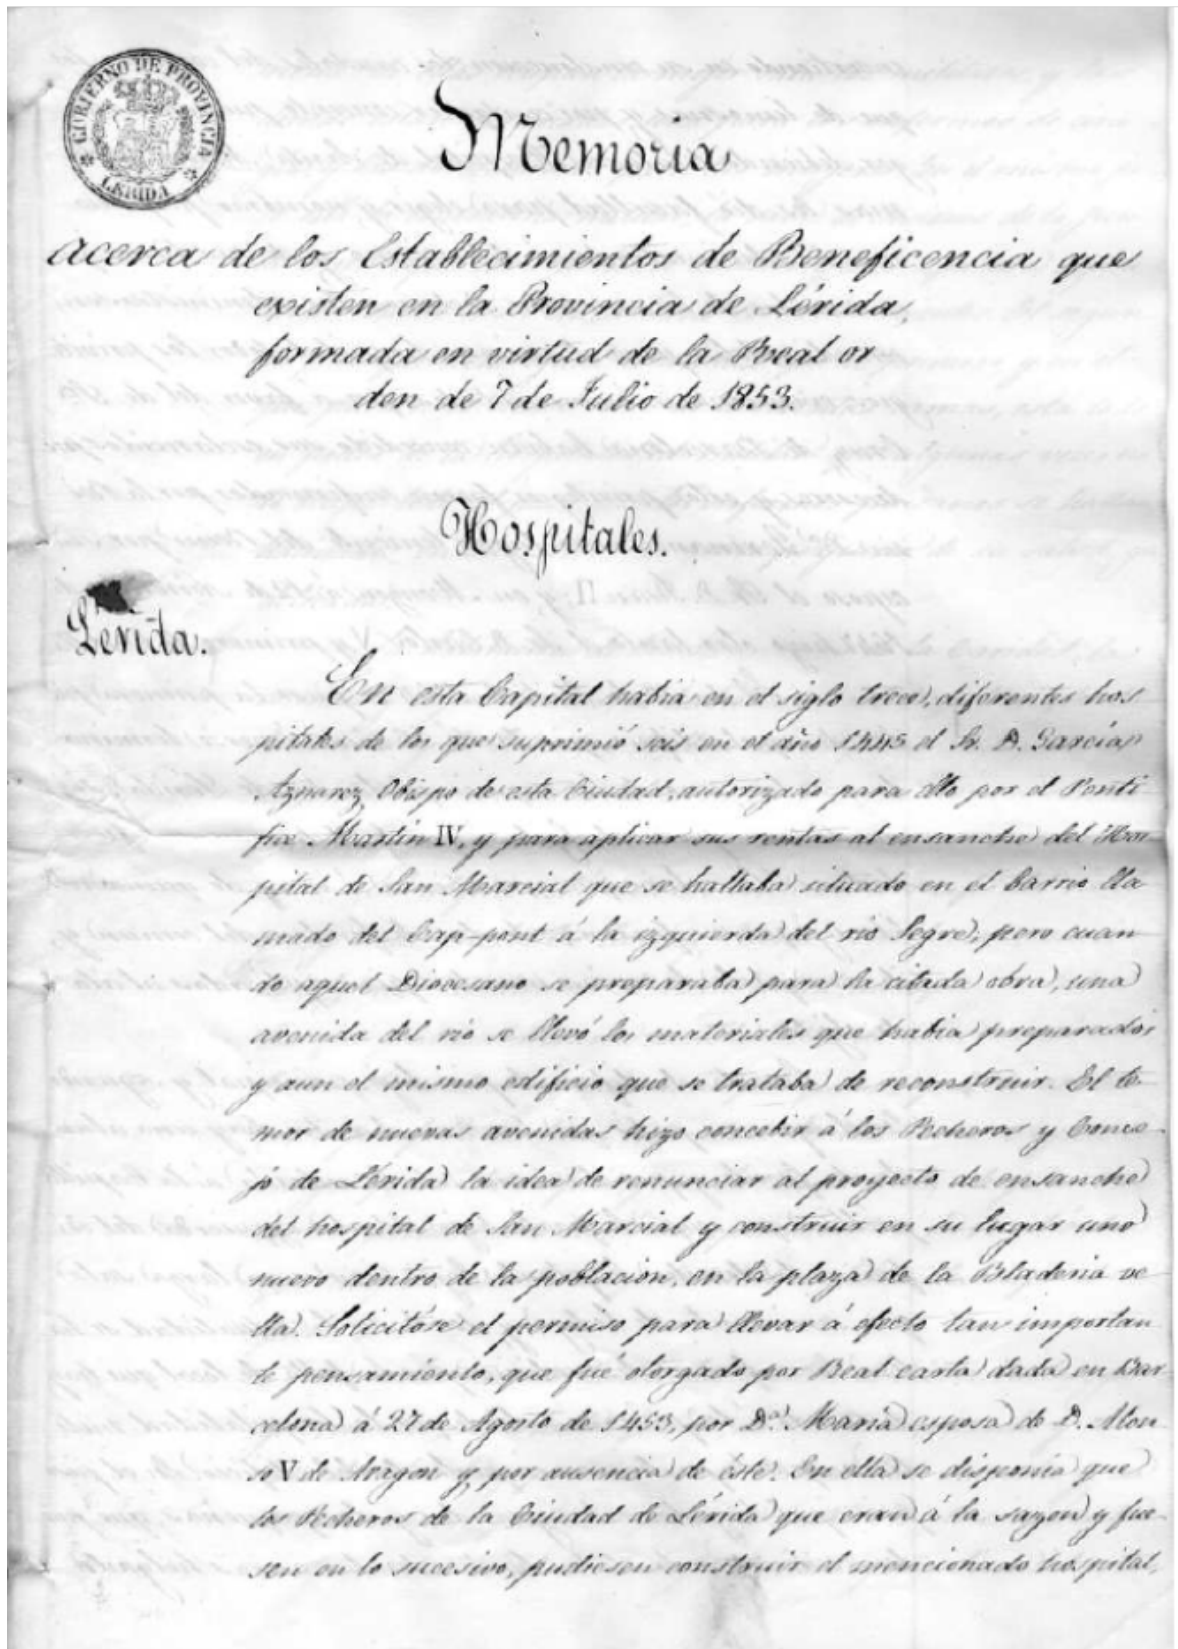 GOBIERNO DE PROVINCIA
LERIDA
Memoria
acerca de los Establecimientos de Beneficencia que
existen en la Provincia de Lérida,
formada en virtud de la Real or
den de 7 de Julio de 1853.
Hospitales.
Lérida.
En esta Capital habia en el siglo trece, diferentes hos
pitales de los que suprimió seis en el año 1445 el Sr. D. García
Aznarez Obispo de esta Ciudad, autorizado para ello por el Pontí
fice Martin IV, y para aplicar sus rentas al ensanche del Hos-
pital de San Marcial que se hallaba situado en el barrio lla
mado del Cap-pont á la izquierda del rio Segre; pero cuan
do aquel Diocesano se preparaba para la citada obra, una
avenida del rio se llevó los materiales que habia preparados
y aun el mismo edificio que se trataba de reconstruir. El te-
mor de nuevas avenidas hizo concebir á los Pecheros y Conce-
jo de Lérida la idea de renunciar al proyecto de ensanche
del hospital de San Marcial y construir en su lugar uno
nuevo dentro de la poblacion, en la plaza de la Bladeria ve-
lla. Solicitóse el permiso para llevar á efecto tan importan
te pensamiento, que fué otorgado por Real carta dada en Bar-
celona á 27 de Agosto de 1453, por Dª. María esposa de D. Alon
so V de Aragon y por ausencia de éste. En ella se disponia que
los Pecheros de la Ciudad de Lérida que eran á la sazon y fue-
sen en lo sucesivo, pudiesen construir el mencionado hospital,